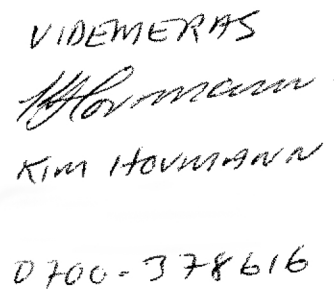 VIDEMERAS
KHovmann
KIM HOVMANN
0700-378616